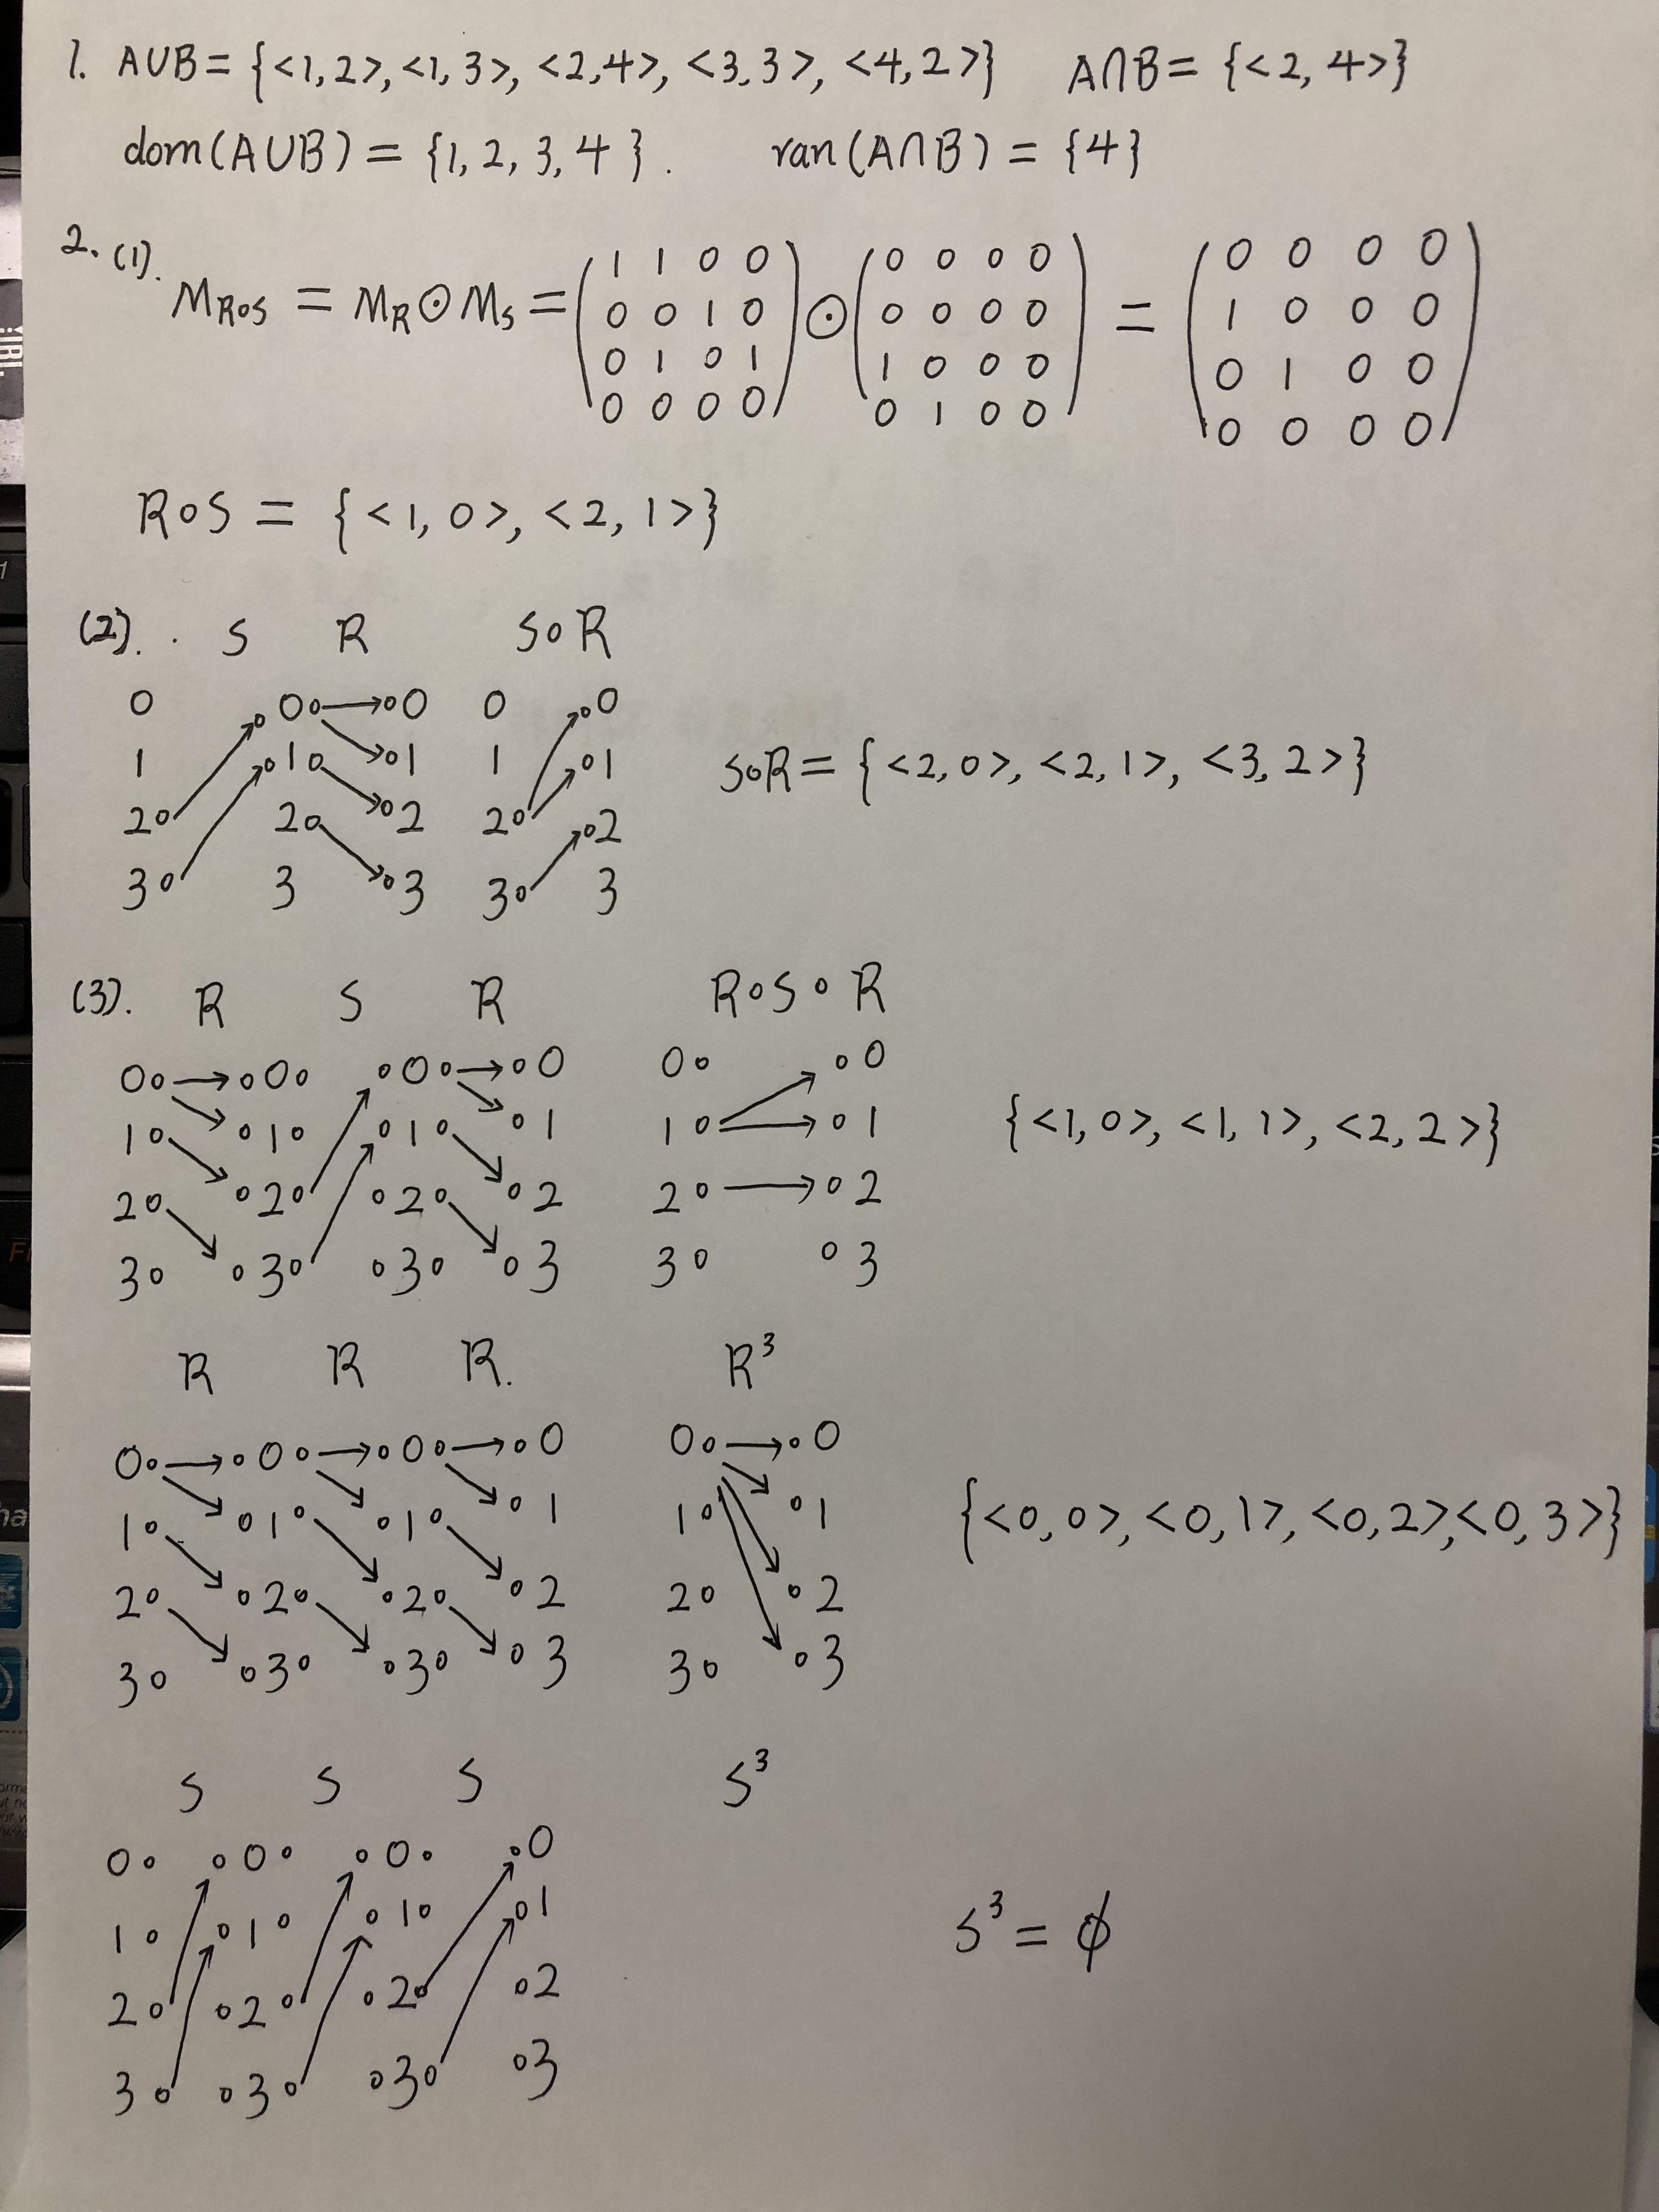 1. A∪B = {<1,2>,<1,3>, <2,4>, <3,3>, <4,2>} A∩B = {<2,4>}
dom(A∪B) = {1, 2, 3, 4 }. ran(A∩B) = {4}
2. (1).
M_R∘S = M_R ⊙ M_S =
( 1 1 0 0 ) ( 0 0 0 0 ) ( 0 0 0 0 )
( 0 0 1 0 ) ⊙ ( 0 0 0 0 ) = ( 1 0 0 0 )
( 0 1 0 1 ) ( 1 0 0 0 ) ( 0 1 0 0 )
( 0 0 0 0 ) ( 0 1 0 0 ) ( 0 0 0 0 )
R∘S = { <1, 0>, <2, 1>}
(2). S R S∘R
0 0 → 0 0 0
1 1 1 1 1
2 2 2 2 2
3 3 3 3 3
S∘R = { <2, 0>, <2, 1>, <3, 2>}
(3). R S R R∘S∘R
0 → 0 0 → 0 0 0
1 1 1 1 1 → 1
2 2 2 2 2 → 2
3 3 3 3 3 3
{<1, 0>, <1, 1>, <2, 2>}
R R R. R³
0 → 0 → 0 → 0 0 → 0
1 1 1 1 1 1
2 2 2 2 2 2
3 3 3 3 3 3
{<0, 0>, <0, 1>, <0, 2>,<0, 3>}
S S S S³
0 0 0 0
1 1 1 1
2 2 2 2
3 3 3 3
S³ = ϕ